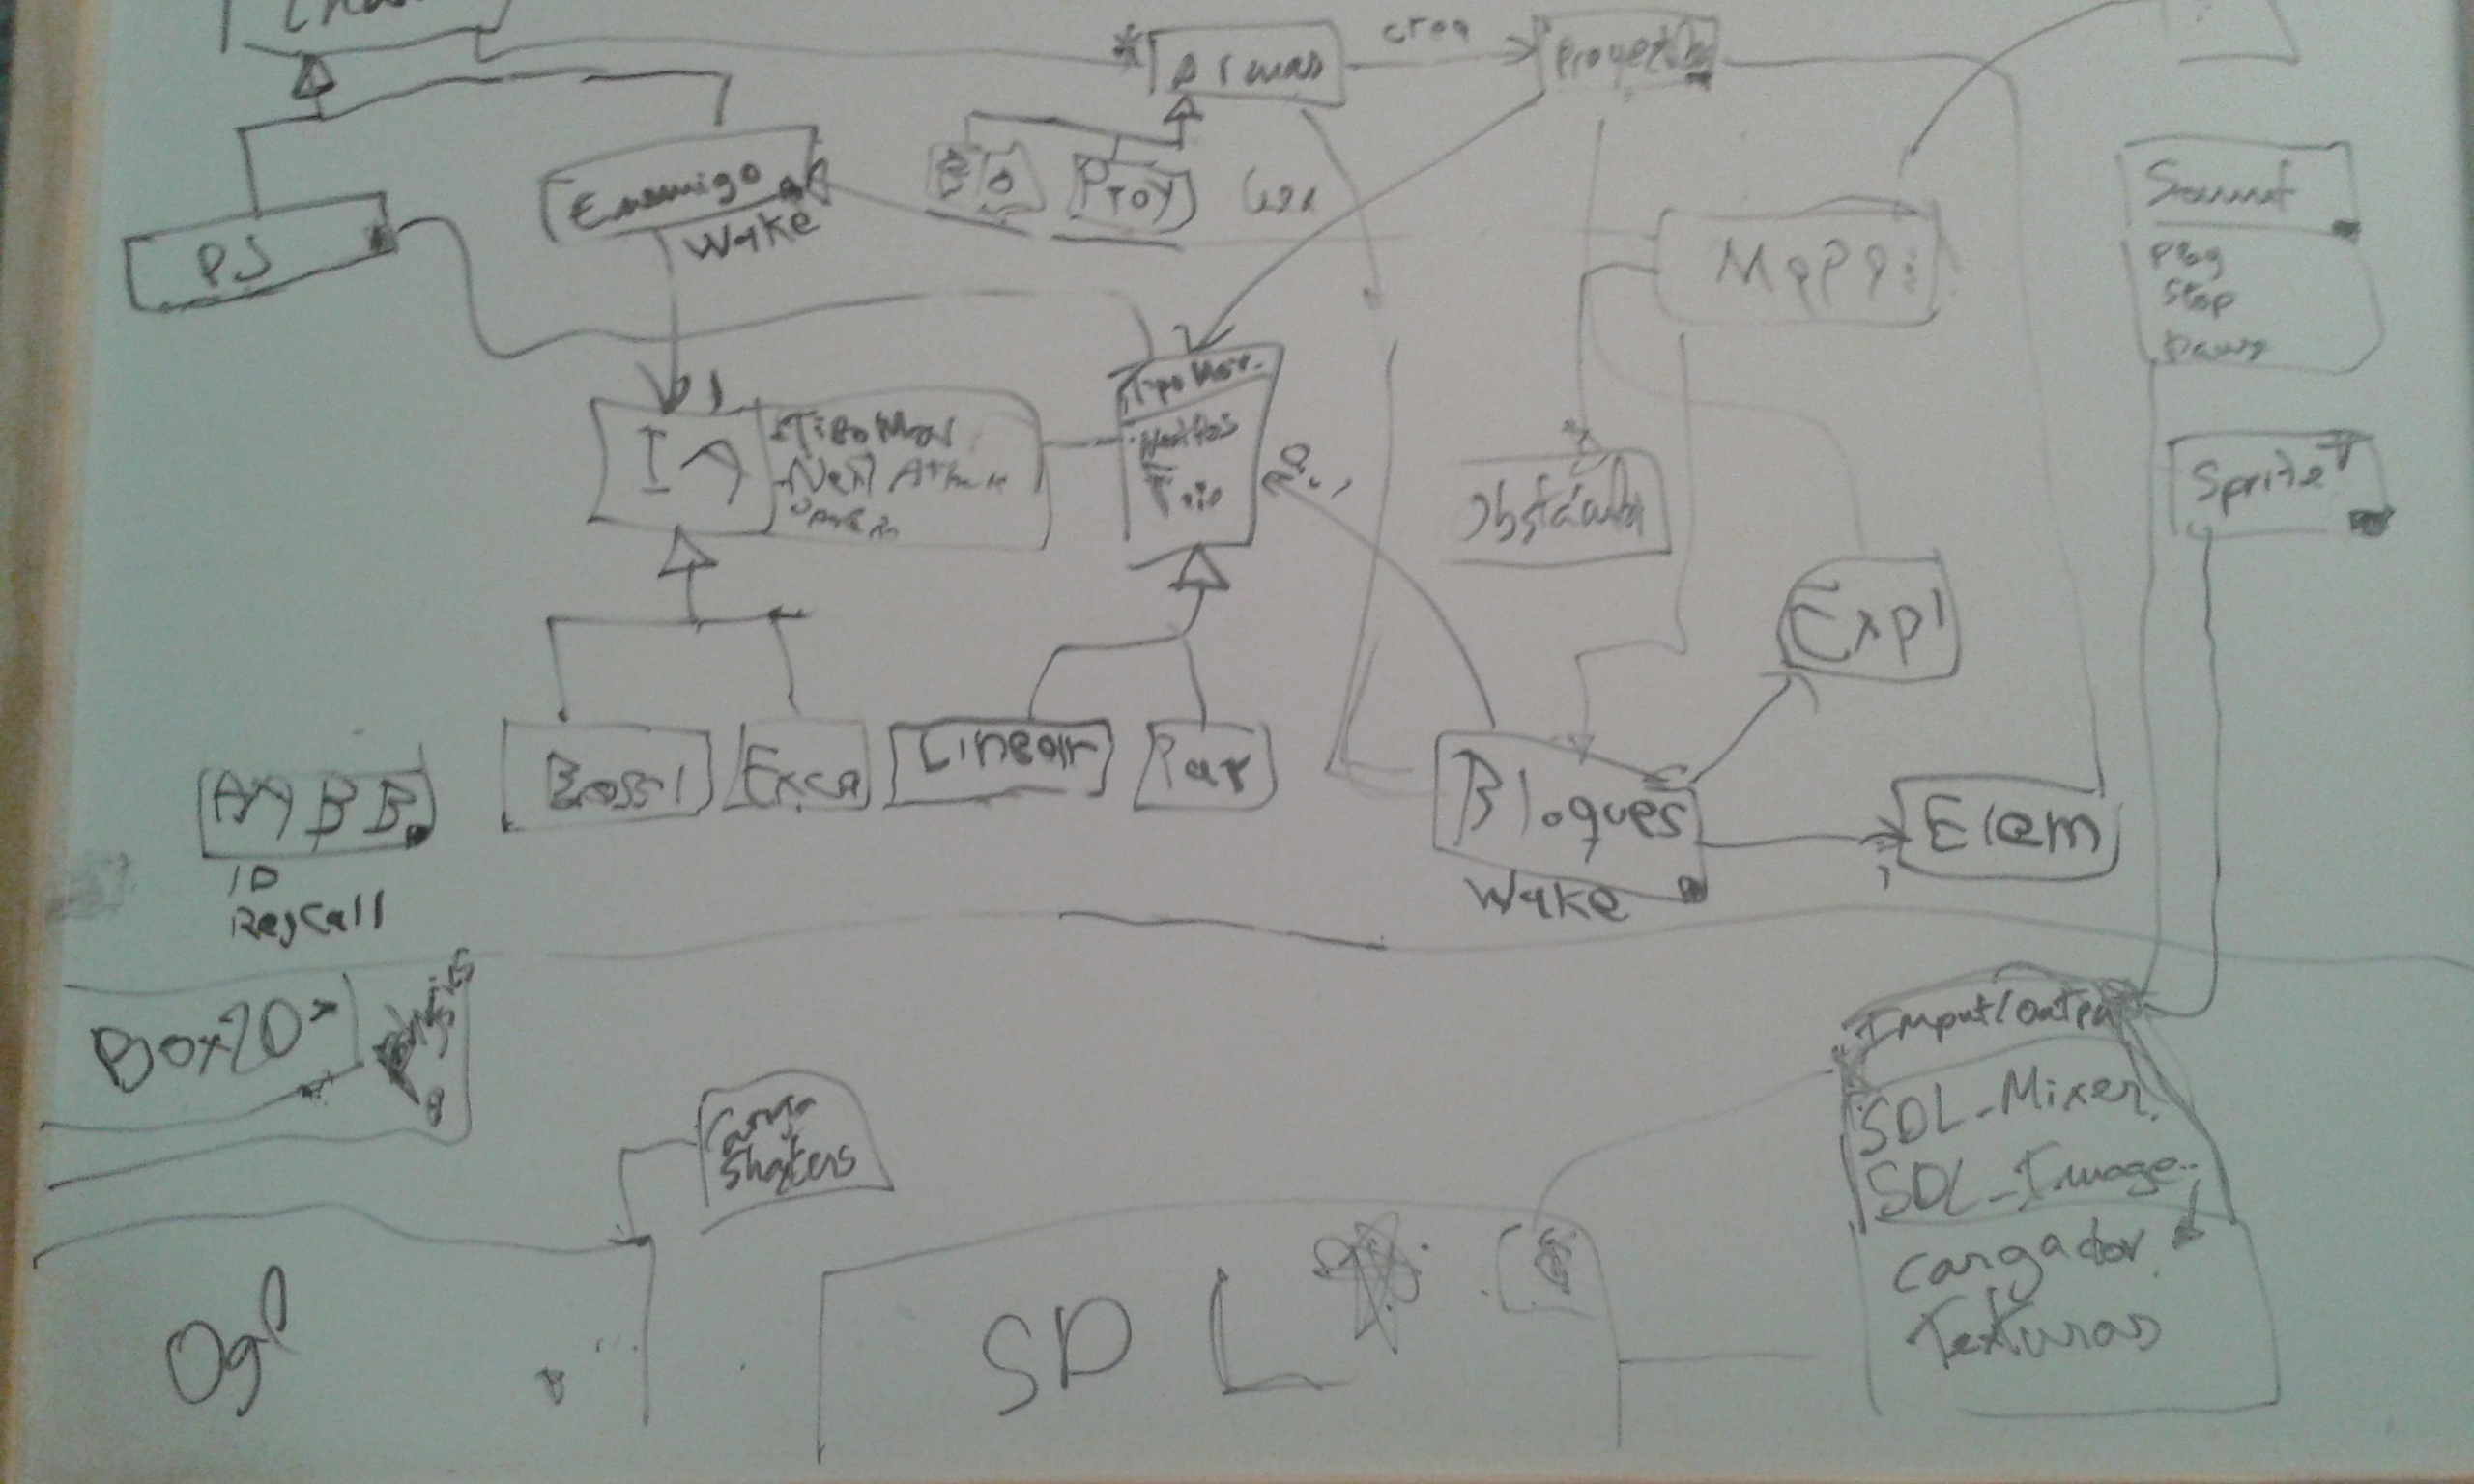 Armas
crea
Proyectil
PJ
Enemigo
Wake
Proy
Mapa
Sound
Play
Stop
Pause
IA
TipoMov
Next
TipoMov.
Obstáculo
Sprite
Expl
Boss1
Linear
Par
Bloques
Wake
Elem
AABB
ID
RayCall
Box2D
Input/Output
SDL_Mixer
SDL_Image
Cargador
Texturas
Carga
Shaters
Ogl
SDL